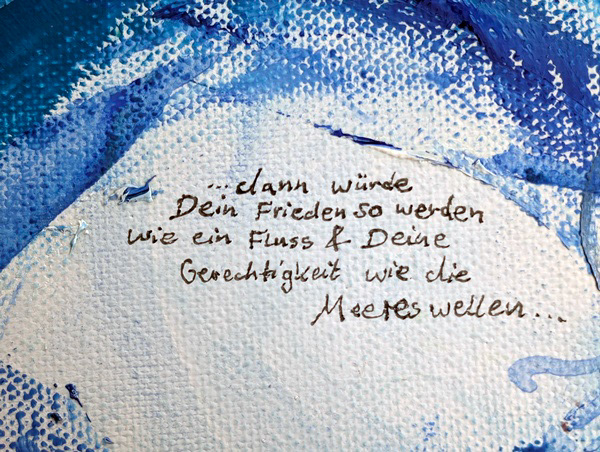 ...dann würde
Dein Frieden so werden
wie ein Fluss & Deine
Gerechtigkeit wie die
Meereswellen...